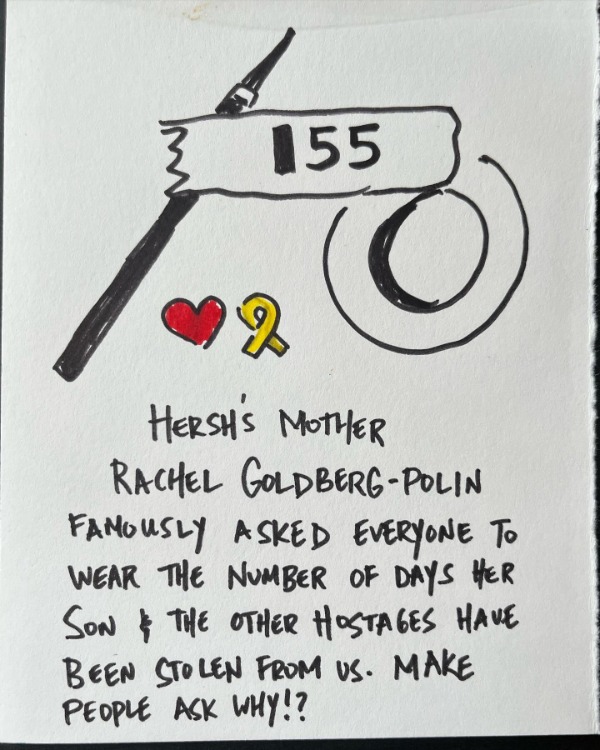 155
HERSH'S MOTHER
RACHEL GOLDBERG-POLIN
FAMOUSLY ASKED EVERYONE TO
WEAR THE NUMBER OF DAYS HER
SON & THE OTHER HOSTAGES HAVE
BEEN STOLEN FROM US. MAKE
PEOPLE ASK WHY!?